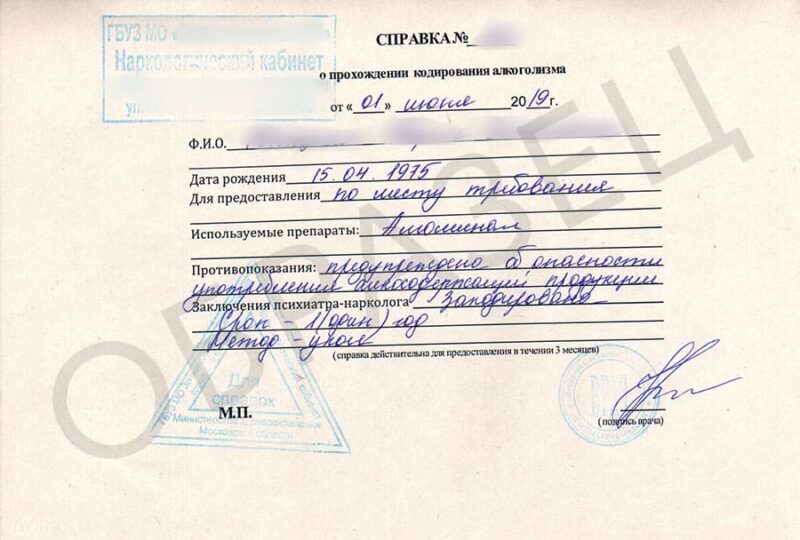 ГБУЗ МО «
Наркологический кабинет
ул.
СПРАВКА №
о прохождении кодирования алкоголизма
от «01» июня 2019 г.
Ф.И.О.
Дата рождения 15.04.1975
Для предоставления по месту требования
Используемые препараты: Алкоминал
Противопоказания: предупреждена об опасности
употребления алкосодержащий продукции
Заключения психиатра-нарколога Закодирована
Срок - 1 (один) год
Метод - укол
(справка действительна для предоставления в течении 3 месяцев)
Для
справок
ГБУЗ МО
Министерство здравоохранения
Московской области
кабинет
М.П.
ВРАЧ
(подпись врача)
ОБРАЗЕЦ